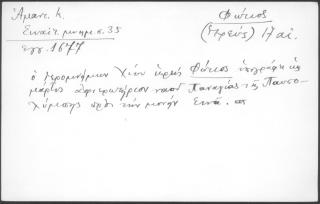 Ἀμαντ. Κ.
Σιναϊτ. μνημ. σ. 35
ἔγγ. 1677
Φώτιος
(Ἱερεὺς) 17 αἰ.
ὁ ἱερομνήμων Χίου ἱερεὺς Φώτιος ὑπογράφει ὡς
μάρτυς ἀφιερωτήριον ναοῦ Παναγίας τῆς
πρὸς τὴν μονὴν Σινᾶ.